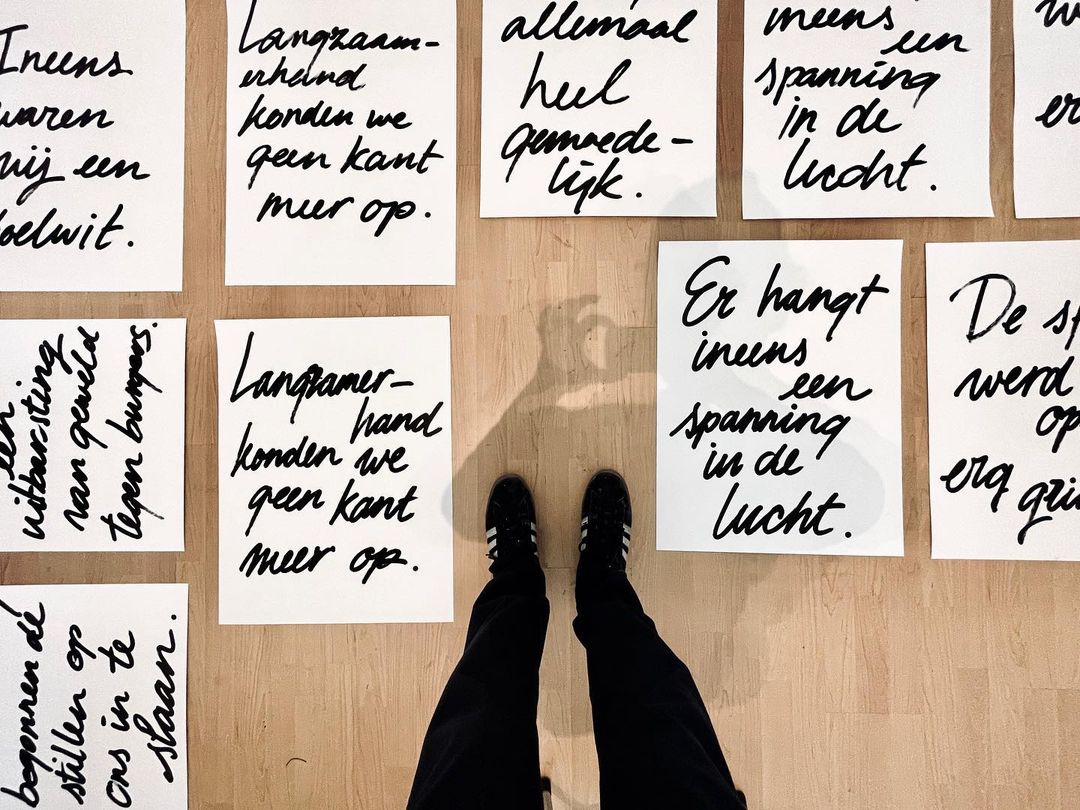 Ineens
waren
wij een
oelwit.
Langzaam-
erhand
konden we
geen kant
meer op.
allemaal
heel
gemoede-
lijk.
ineens
een
spanning
in de
lucht.
w
er
een
uitbarsting
van geweld
tegen burgers.
Langzamer-
hand
konden we
geen kant
meer op.
Er hangt
ineens
een
spanning
in de
lucht.
De sp
werd
op
erg gri
begonnen de
stillen op
ons in te
slaan.